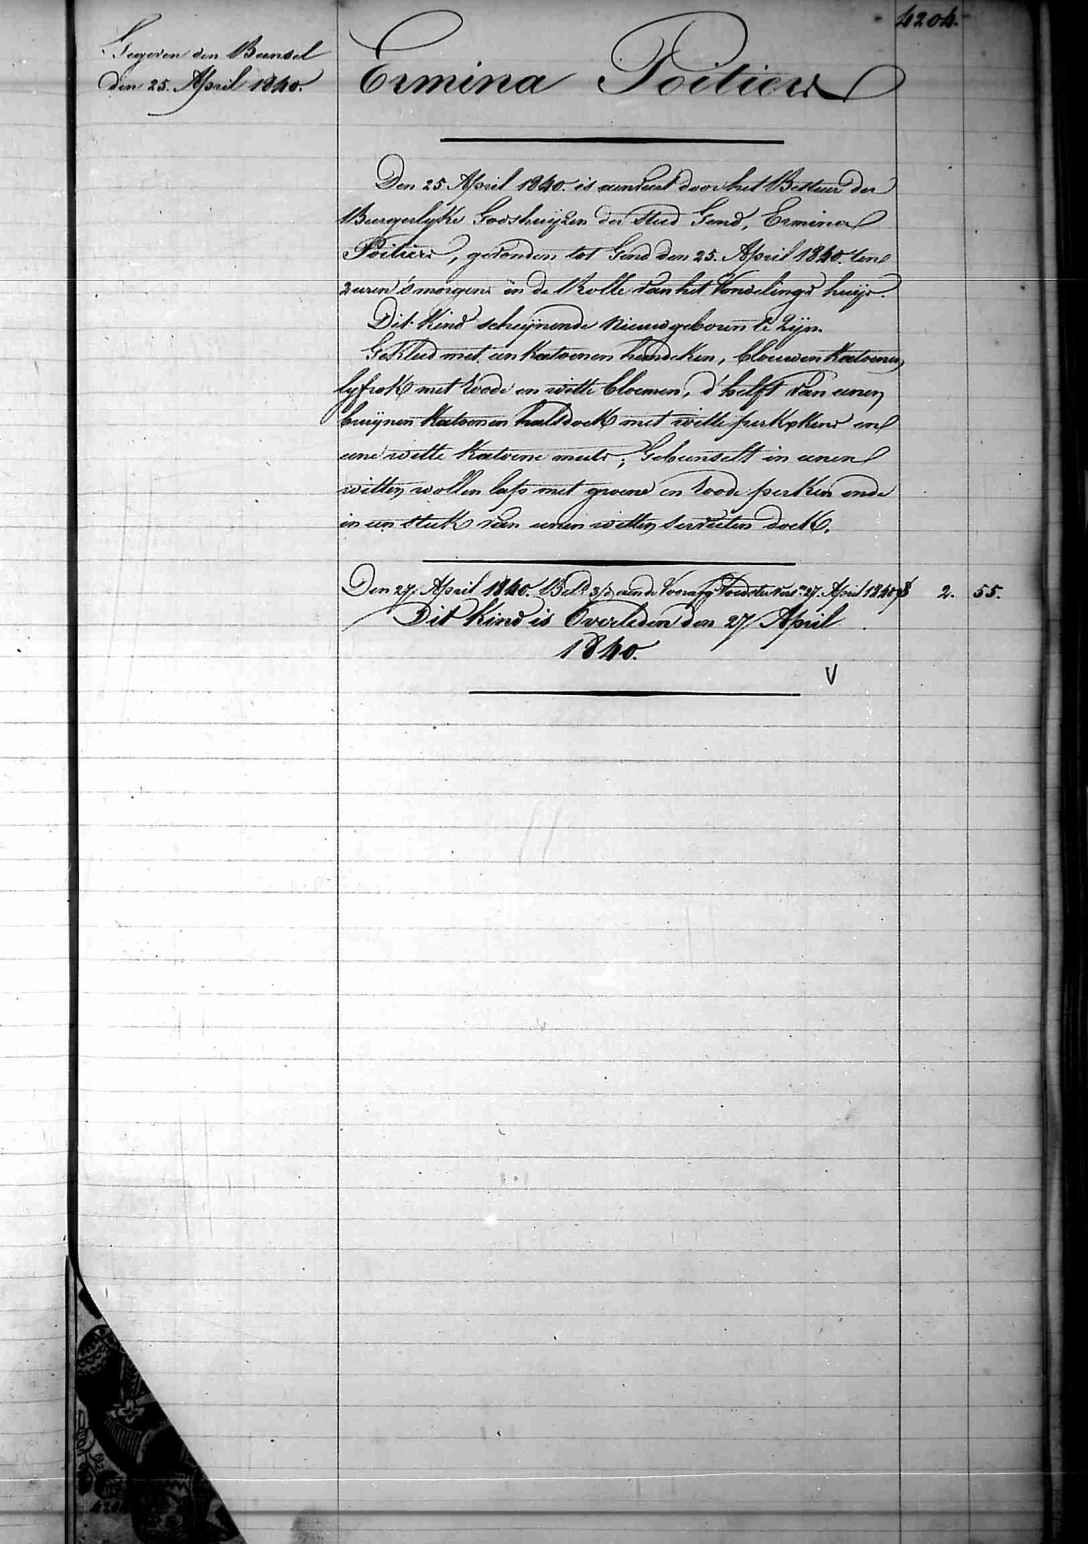 4204.
Gegeven den Bunsel
den 25. April 1840.
Ermina Poitiers
Den 25 April 1840. is aenveert door het Bestuer der
Burgerlyke Godshuijzen der stad Gend, Ermina
Poitiers, gevonden tot Gend den 25. April 1840. ten
2 uren 's morgens in de Rolle van het Vondelings huijs.
Dit Kind scheijnende nieuwgeboren te Zijn.
Gekleed met een Katoenen hemdeken, blauwen Katoenen
lyfrok met roode en witte bloemen, d'helft van eenen
bruijnen Katoenen halsdoek met witte perkskens en
eene witte Katoene muts; Gebunselt in eenen
witten wollen laps met groene en roode perken ende
in een stuk van eenen witten servieten doek.
Den 27. April 1840. Bet. 3/d aende 27. April 1840 f 2. 55.
Dit Kind is Overleden den 27 April
1840.
V